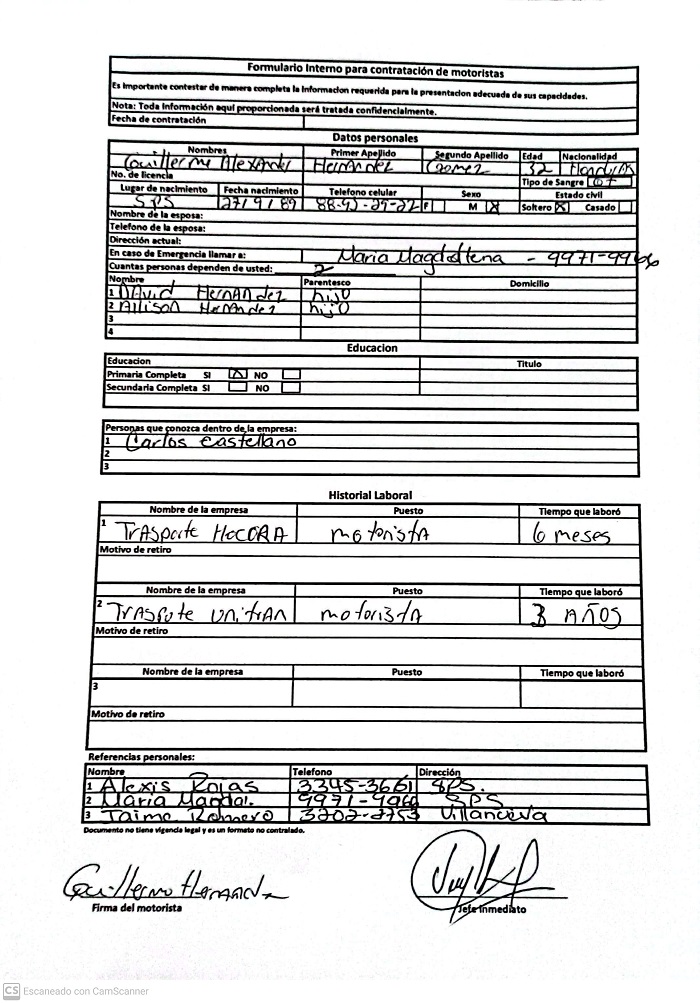 Formulario Interno para contratación de motoristas
Es importante contestar de manera completa la informacion requerida para la presentacion adecuada de sus capacidades.
Nota: Toda información aqui proporcionada será tratada confidencialmente.
Fecha de contratación
Datos personales
Nombres Primer Apellido Segundo Apellido Edad Nacionalidad
Guillerme Alexander Hernández Gomez 32
No. de licencia Tipo de Sangre
Lugar de nacimiento Fecha nacimiento Telefono celular Sexo Estado civil
SPS 27/9/89 F M X Soltero X Casado
Nombre de la esposa:
Telefono de la esposa:
Dirección actual:
En caso de Emergencia llamar a: Maria - 9971-9966
Cuantas personas dependen de usted: 2
Nombre Parentesco Domicilio
1 David Hernandez hijo
2 Allison Hernandez hijo
3
4
Educacion
Educacion Titulo
Primaria Completa SI X NO
Secundaria Completa SI NO
Personas que conozca dentro de la empresa:
1 Carlos Castellano
2
3
Historial Laboral
Nombre de la empresa Puesto Tiempo que laboró
1 Trasporte HOCORA motorista 6 meses
Motivo de retiro
Nombre de la empresa Puesto Tiempo que laboró
2 motorista 3 AÑOS
Motivo de retiro
Nombre de la empresa Puesto Tiempo que laboró
3
Motivo de retiro
Referencias personales:
Nombre Telefono Dirección
1 Alexis Rojas 3345-3661 SPS.
2 Maria Magdal. SPS
3 Jaime Romero Villanueva
Documento no tiene vigencia legal y es un formato no contralado.
Guillermo
Firma del motorista Jefe inmediato
CS Escaneado con CamScanner